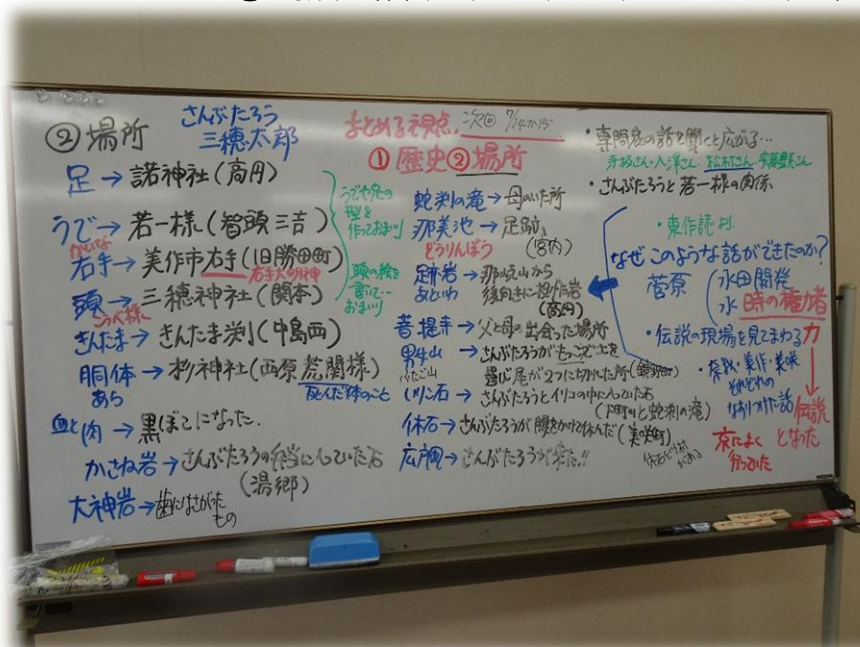 ② 場所
さんぶたろう
三穂太郎
足 → 諾神社(高円)
うで → 若一様(智頭 三吉)
かいな
右手 → 美作市右手(旧勝田町)
右手大明神
頭 → 三穂神社(関本)
こうべ様
きんたま → きんたま渕(中島西)
胴体 → 杉神社(西原 荒関様)
あら
死んだ体のこと
血と肉 → 黒ぼこになった.
かさね岩 → さんぶたろうの弁当にしていた石
(湯郷)
大神岩 → 歯にはさがった
もの
うでや足の
型を
作っておまいり
頭の絵を
書いて…
おまいり
まとめる視点. 次回 7/14か15
① 歴史 ② 場所
蛇渕の滝 → 母のいた所
那美池 → 足跡
どうりんぼう
(宮内)
足跡岩 → 那岐山から
あといわ
後向きに投げた岩
(高円)
菩提寺 → 父と母の出会った場所
→ さんぶたろうがもっこで土を
ふたご山
運び尾が2つに切れた所
→ さんぶたろうとイリコの中にしていた石
と蛇渕の滝)
休石 → さんぶたろうが腰をかけて休んだ
広岡 → さんぶたろうが来た!!
・専門家の話を聞くと広がる…
松村さん・
・さんぶたろうと若一様の関係
・東作誌より.
なぜこのような話ができたのか?
菅原
水田開発
水 時の権力者
・伝説の現場を見てまわる
力
・奈義・美作・美咲
それぞれの
なおりつけた話
伝説
となった
京によく
行っていた